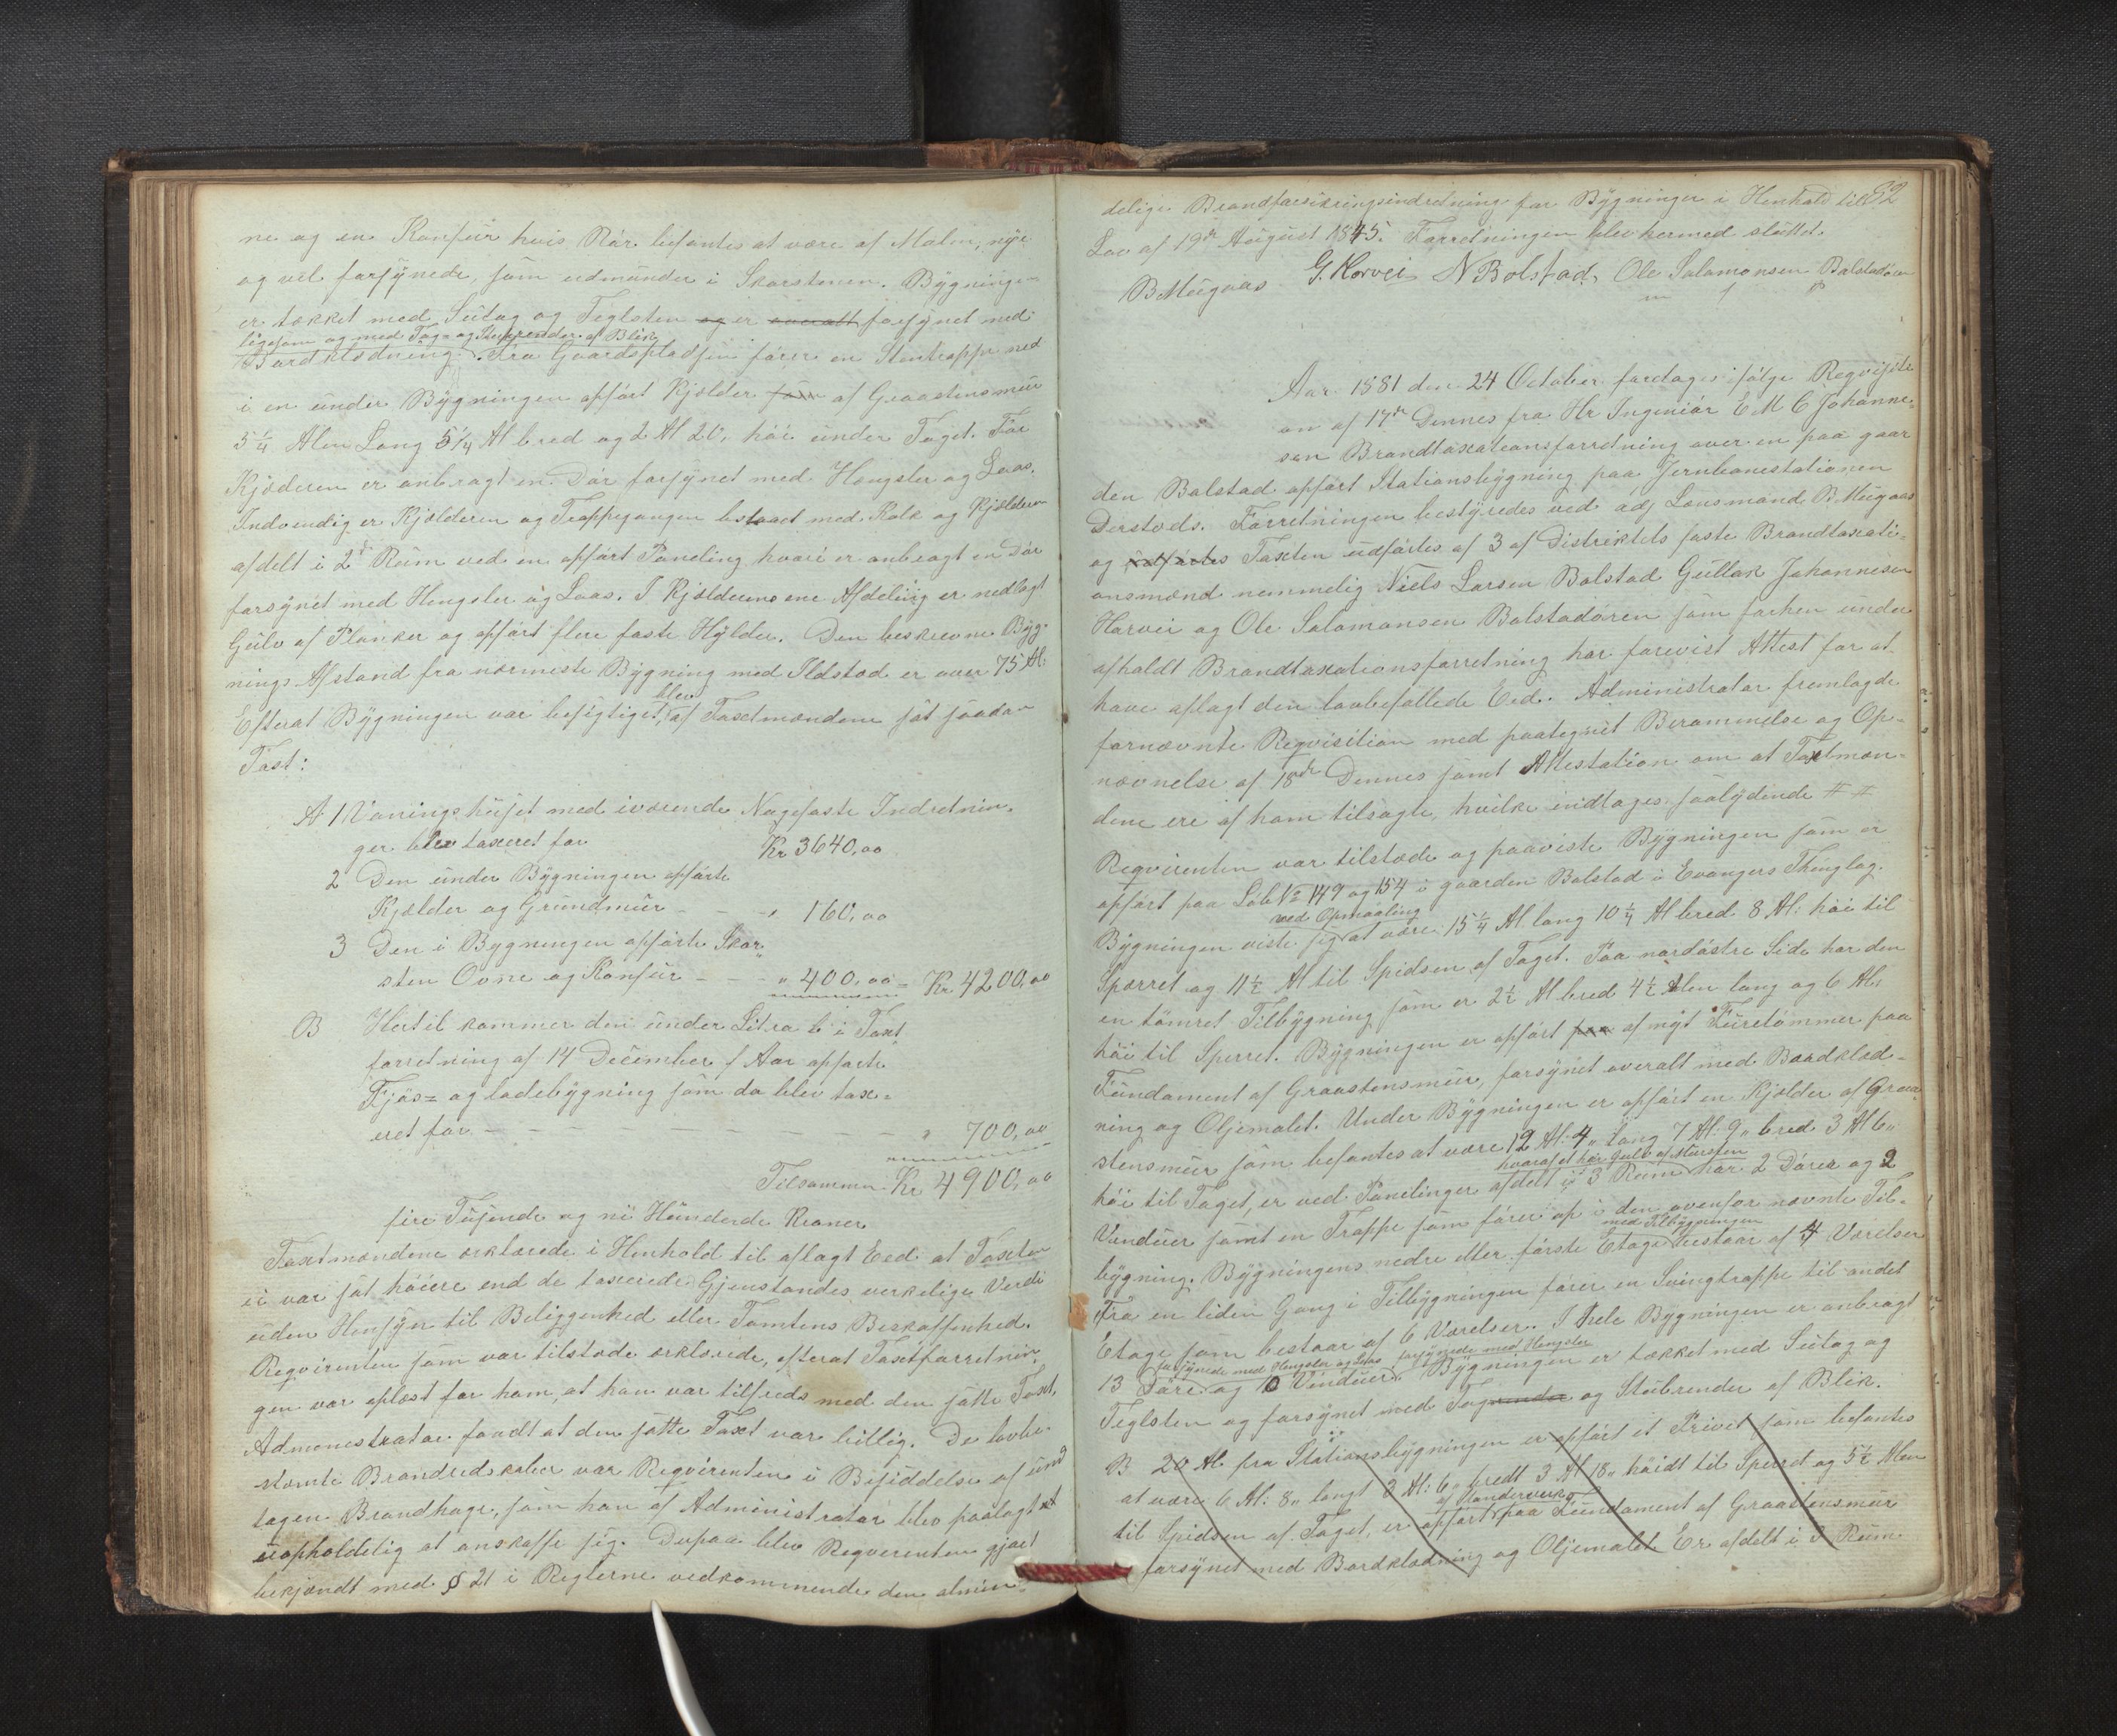 ne og en Komfur hvis Rør befantes at være af Malm, nye
og vel forsynede, som udmunder i Skorstenen. Bygningen
er tækket med Sutag og Teglsten og er overalt forsynet med
ligesom og med Tag- og Stuprender af Blik
Bordklædning. Fra Gaardspladsen fører en Stentrappe ned
i en under Bygningen opført Kjælder som af Graastensmur
5 1/4 Alen Lang 5 1/4 Al bred og 2 Al 20" høi under Taget. For
Kjæderen er anbragt en Dør forsynet med Hængsler og Laas.
Indvendig er Kjælderen og Trappegangen beslaaet med Kalk og Kjælderen
afdelt i 2de Rum ved en opført Paneling hvori er anbragt en Dør
forsynet med Hengsler og Laas. I Kjælderens ene Afdeling er nedlagt
Gulv af Planker og opført flere faste Hylder. Den beskrevne Byg-
nings Afstand fra nærmeste Bygning med Ildsted er over 75 Al.
Efterat Bygningen var besigtiget, blev af Taxtmændene sat saadan
Taxt:
A 1 Vaaningshuset med iværende Nagefaste Indretnin-
ger blev taxeret for Kr 3640,00
2 Den under Bygningen opførte
Kjælder og Grundmur - - " 160,00
3 Den i Bygningen opførte Skor-
sten Ovne og Komfur - - - " 400,00 = Kr. 4200,00
B Hertil kommer den under Litra b i Taxt
forretning af 14 December f Aar opførte
Fjøs= og ladebygning som da blev tax=
eret for - - - - - - - - " 700,00
Tilsammen Kr 4900,00
fire Tusende og ni Hunderde Kroner
Taxtmændene erklærede i Henhold til aflagt Eed at Taxten
ei var sat høiere end de taxerede Gjenstandes verkelige Verdi
uden Hensyn til Beliggenhed eller Tomtens Beskaffenhed.
Reqvirenten som var tilstede erklærede, efterat Taxtforretnin-
gen var oplæst for ham, at han var tilfreds med den satte Taxt.
Admenestrator fandt at den satte Taxt var billig. De lovbe-
stemte Brandredskaber var Reqvirenten i Besiddelse af und
tagen Brandhage, som han af Administrator blev paalagt
uopholdelig at anskaffe sig. Derpaa blev Reqverenten gjort
bekjendt med § 21 i Reglerne vedkommende den almin-
92
delige Brandforsikringsindretning for Bygninger i Henhold til
Lov af 19de August 1845. Forretningen blev hermed sluttet.
B Mugaas G. Horvei N Bolstad, Ole Salamonsen Bolstadøren
Aar 1881 den 24 October foretoges ifølge Reqvisiti
on af 17de Dennes fra Hr Ingeniør E M C Johanne-
sen Brandtaxationsforretning over en paa gaar
den Bolstad opført Stationsbygning paa Jernbanestationen
Dersteds. Forretningen bestyredes ved adj Lensmand B. Mugaas
og udførtes Taxten udførtes af 3 af Distriktets faste Brandtaxati-
onsmænd nemmelig Niels Larsen Bolstad Gullak Johannesen
Horvei og Ole Salamonsen Bolstadøren som forhen under
afholdt Brandtaxationsforretning har forevist Attest for at
have aflagt den lovbefallede Eed. Administrator fremlagde
fornævnte Reqvisition med paategnet Berammelse og Op-
nævnelse af 18de Dennes samt Attestation om at Taxtmæn-
dene ere af ham tilsagte, hvilke indtages saalydende # #
Reqvirenten var tilstede og paaviste Bygningen som er
opført paa Løb No 149 og 154 i gaarden Bolstad i Evangers Thinglag.
ved Opmaaling
Bygningen viste sig at være 15 1/4 Al lang 10 1/4 Al bred 8 Al: høi til
Sperret og 11 1/2 Al til Spidsen af Taget. Paa nordøstre Side har den
en tømret Tilbygning som er 2 1/2 Al bred 4 1/2 Alen lang og 6 Al:
høi til Sperret. Bygningen er opført paa af nyt Furetømmer paa
Fundament af Graastensmur, forsynet overalt med Bordklæd-
ning og Oljemalet. Under Bygningen er opført en Kjælder af Graa
stensmur som befantes at være 12 Al: 4" Lang 7 Al: 9" bred 3 Al 6"
hvoraf et har Gulv af Mursten
høi til Taget, er ved Panelinger afdelt i 3 Rum har 2 Døre og 2
Vinduer samt en Trappe som fører op i den ovenfor nævnte Til-
med Tilbygningen
bygning. Bygningens nedre eller første Etage bestaar af 4 Værelser
Fra en liden Gang i Tilbygningen fører en Svingtrappe til andet
Etage som bestaar af 6 Værelser. I hele Bygningen er anbragt
forsynede med Hengsler og Laas forsynede med Hengsler
13 Døre og 10 Vinduer. Bygningen er tækket med Sutag og
Teglsten og forsynet med Tagrender og Stubrender af Blik.
B 20 Al. fra Stationsbygningen er opført et Privet som befantes
at være 6 Al: 8" langt 3 Al: 6" bredt 3 Al 18" høidt til Sperret og 5 1/2 Alen
af Standerverk
til Spidsen af Taget, er opført paa Fundament af Graastensmur
forsynet med Bordklædning og Oljemalet. Er afdelt i 3 Rum